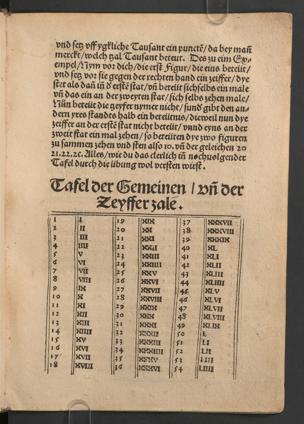 vnd setz vff ygkliche Tausant ein punctē/ da bey man
merckt/ welch zal Tausant beteut. Des zu eim Ex-
empel/ Nym vor dich/ die erst Figur/ die eins beteüt/
vnd setz vor sie gegen der rechten hand ein zeiffer/ dye
ster als dañ iñ ð erstē stat/ vñ beteüt sichselbs ein male
vñ das ein an der zweyten stat/ sich selbs zehen male/
Nün beteüt die zeyfer nymer nicht/ sund' gibt den an-
dern yres standts halb ein beteütnus/ dieweil nun dye
zeiffer an der erstē stat nicht beteüt/ vnnd eyns an der
zweit stat ein mal zehen/ so beteüten dye zwo figuren
zu sammen zehen vnd sten also 10. vñ der geleichen 20
21. 22. 2c. Alles/ wie du das clerlich iñ nochuolgender
Tafel durch die übung wol versten wirst.
Tafel der Gemeinen / vñ der
Zeyffer zale.
1 I 19 XIX 37 XXXVII
2 II 20 XX 38 XXXVIII
3 III 21 XXI 39 XXXIX
4 IIII 22 XXII 40 XL
5 V 23 XXIII 41 XLI
6 VI 24 XXIIII 42 XLII
7 VII 25 XXV 43 XLIII
8 VIII 26 XXVI 44 XLIIII
9 IX 27 XXVII 45 XLV
10 X 28 XXVIII 46 XLVI
11 XI 29 XXIX 47 XLVII
12 XII 30 XXX 48 XLVIII
13 XIII 31 XXXI 49 XLIX
14 XIIII 32 XXXII 50 L
15 XV 33 XXXIII 51 LI
16 XVI 34 XXXIIII 52 LII
17 XVII 35 XXXV 53 LIII
18 XVIII 36 XXXVI 54 LIIII